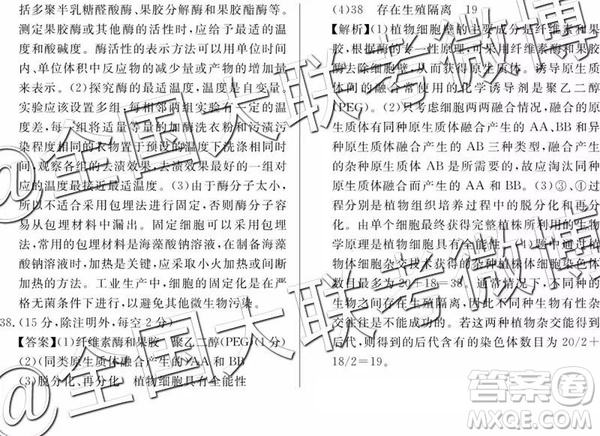 括多聚半乳糖醛酸酶、果胶分解酶和果胶酯酶等。
测定果胶酶或其他酶的活性时,应给予最适的温
度和酸碱度。酶活性的表示方法可以用单位时间
内、单位体积中反应物的减少量或产物的增加量
来表示。(2)探究酶的最适温度,温度是自变量,
实验应该设置多组,每相邻两组实验有一定的温
度差,每一组均将适量等量的加酶洗衣粉和污渍污
染程度相同的衣物置于预设的温度下洗涤相同时
间,观察各组的去渍效果,去渍效果最好的一组对
应的温度最接近最适温度。(3)由于酶分子太小,
所以不采用包埋法进行固定,否则酶分子容易
从包埋材料中漏出。固定细胞可以采用包埋法,
常用的包埋材料是海藻酸钠溶液,在制备海藻
酸钠溶液时,加热是关键,应采取小火加热或间断
加热的方法。工业生产中,细胞的固定化是在严
格无菌条件下进行,以避免其他微生物污染。
38.(15分,除注明外,每空2分)
【答案】(1)纤维素酶和果胶 聚乙二醇(PEG)(1分)
(2)(同类原生质体融合产生的)AA和BB
(3)脱分化、再分化 植物细胞具有全能性
(4)38 存在生殖隔离 19
【解析】(1)植物细胞壁的主要成分是纤维素和果
胶,根据酶的专一性原理,可采用纤维素酶和果胶
酶去除细胞壁,从而获得原生质体。诱导原生质
体间的融合常使用的化学诱导剂是聚乙二醇
(PEG)。(2)只考虑细胞两两融合情况,融合的原
生质体有同种原生质体融合产生的AA、BB和异
种原生质体融合产生的AB三种类型,融合产生
的杂种原生质体是AB,因此应该淘汰的是同种
原生质体融合而产生的AA和BB。(3)③、④过
程分别是植物组织培养过程中的脱分化和再分
化。细胞最终能获得完整植株所利用的生物
学原理是植物细胞具有全能性。(4)题中通过植
物体细胞杂交而获得的杂种植株体细胞染色体
数目最多为20+18=38。通常情况下,不同种生
物之间存在生殖隔离,因此不同种生物有性杂交
存在不亲和的特点。若这两种植物杂交能得到
后代,则得到的后代含有的染色体数目为20/2+
18/2=19。
@全国大联考微博
@全国大联考微博
答案圈
MXQE.COM